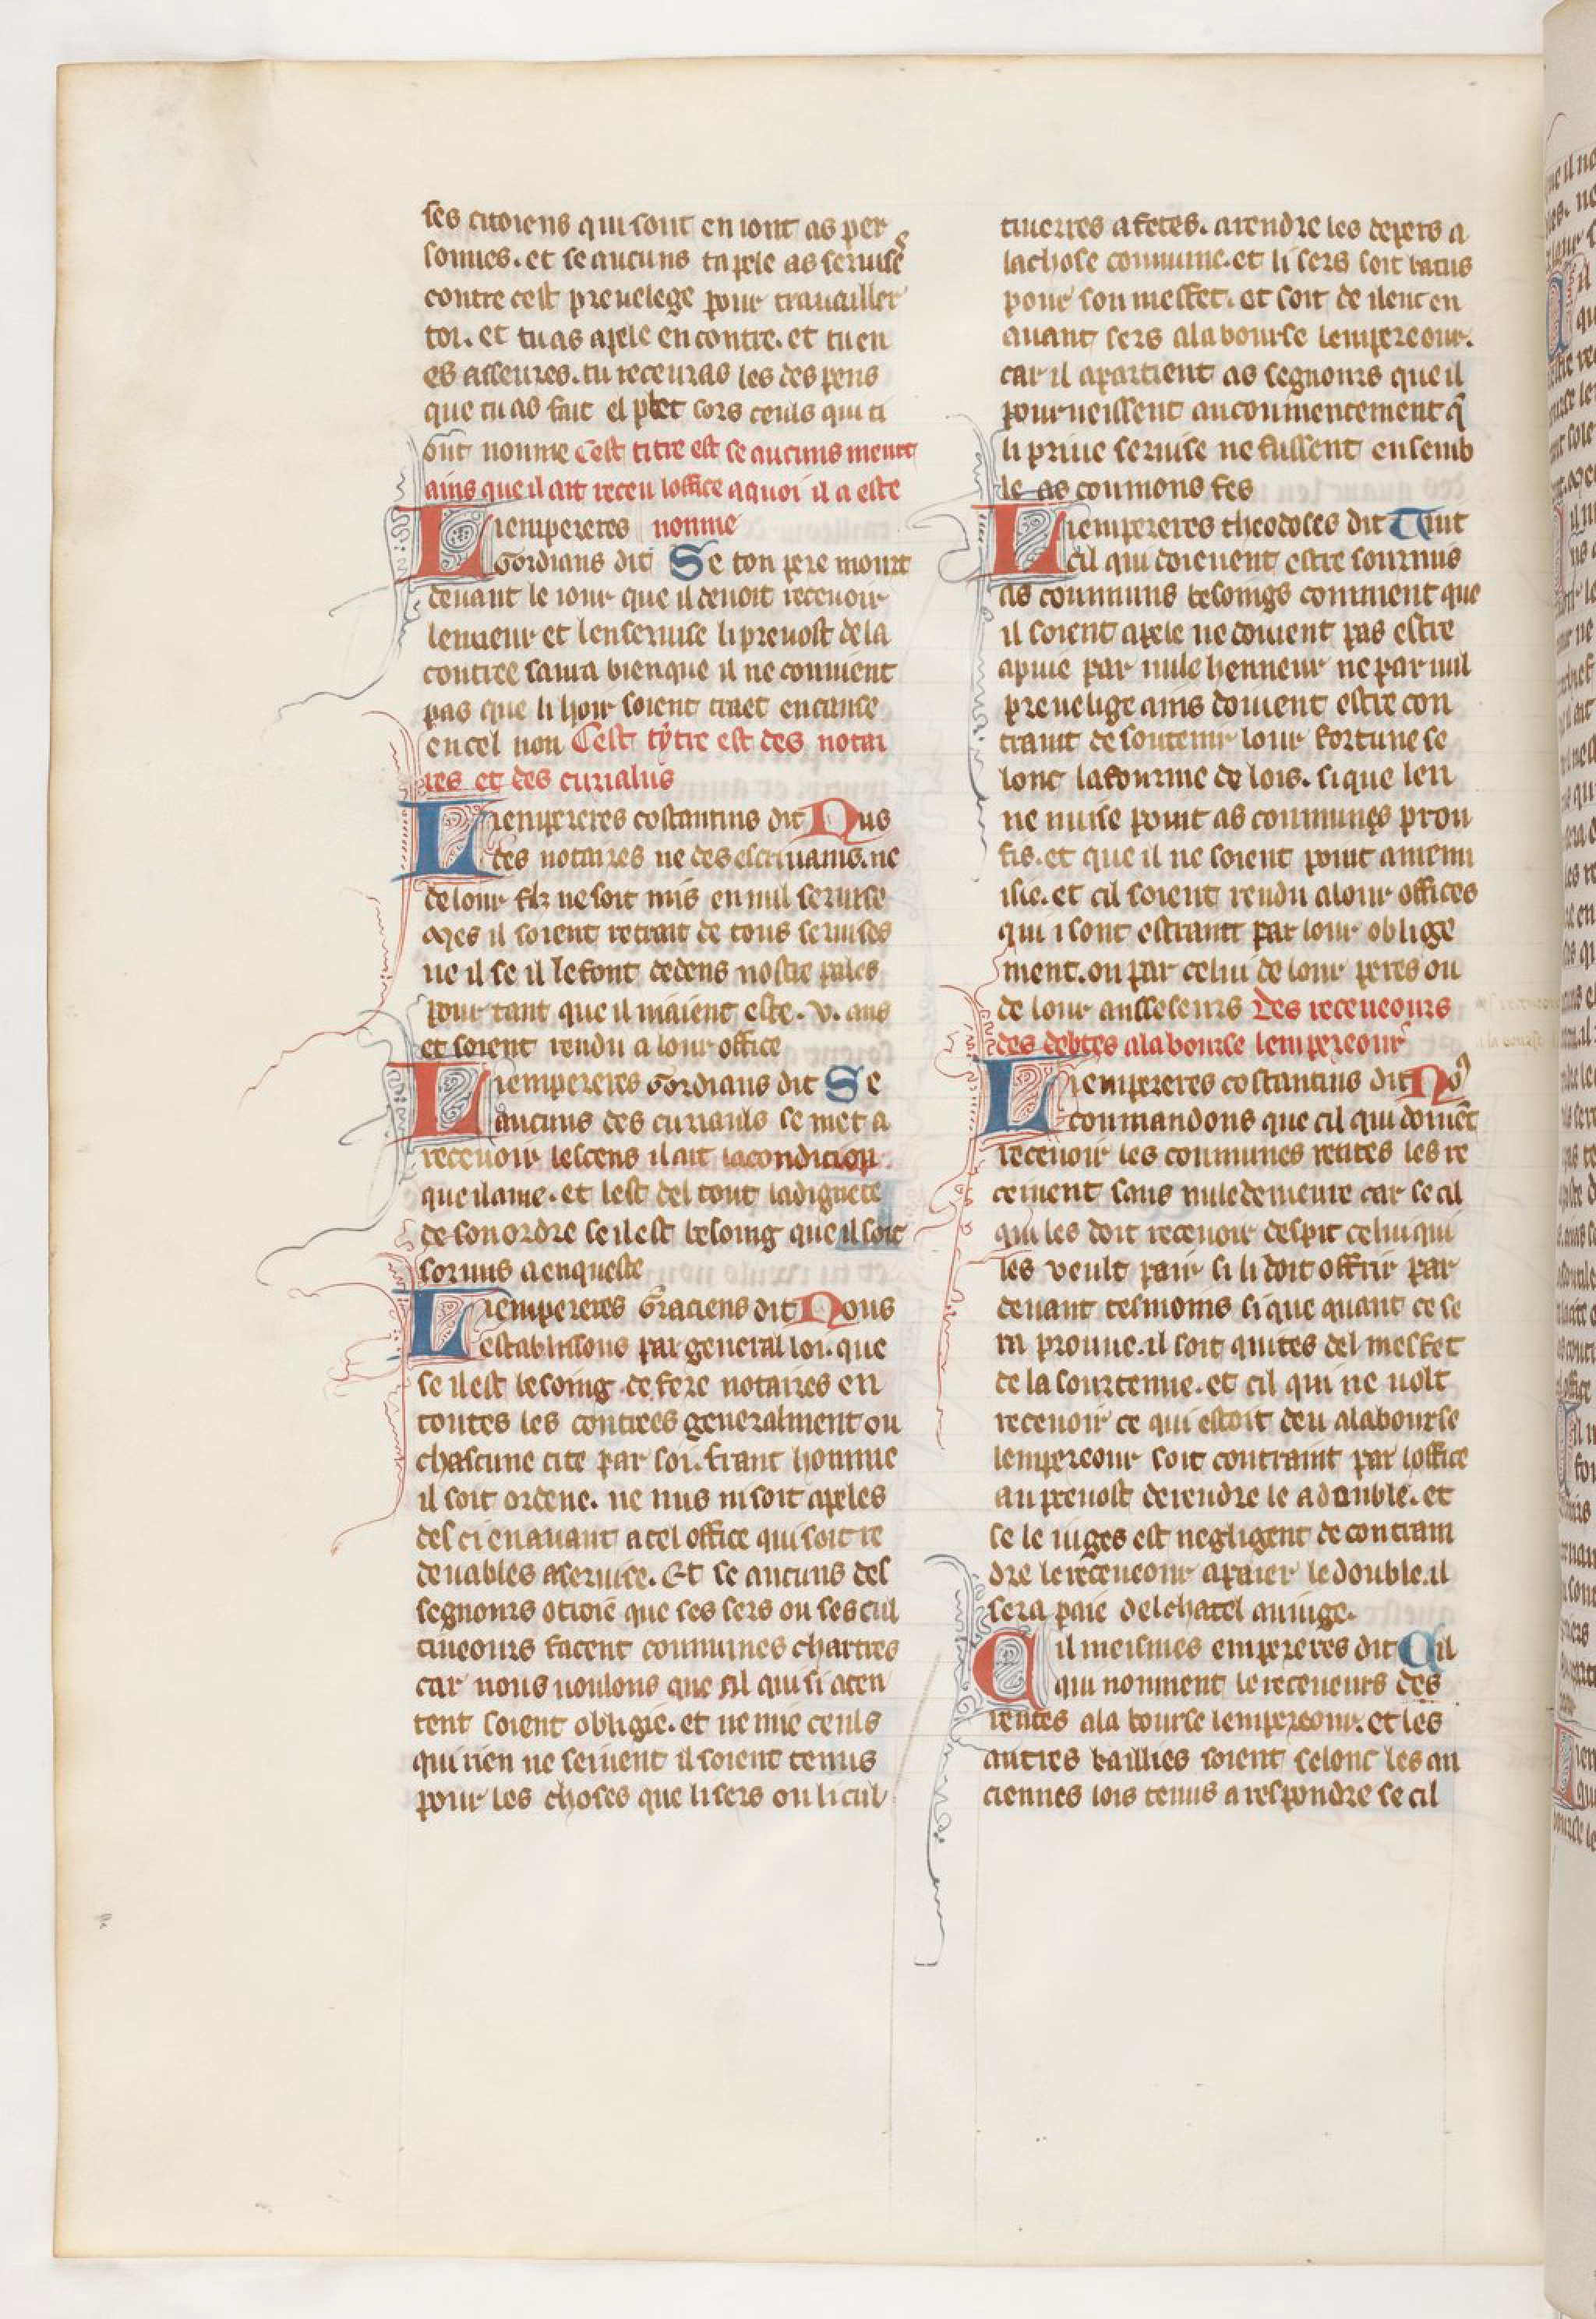 ses citoiens qui sont en iont as per
sonnes. et se aucuns tapele as seruise
contre cest preuelege pour trauaillier
toi. et tu as apele en contre. et tu en
es asseures. tu receuras les despens
que tu as fait el plet vers ceuls qui ti
ont nonme Cest titre est se aucuns meurt
ains que il ait receu loffice a quoi il a este
Liempereres nonme
Gordians dit Se ton pere mourt
deuant le iour que il deuoit receuoir
lenneur et lenseruise li preuost de la
contree saura bien que il ne conuient
pas que li hoir soient traet en cause
en cel non Cest tytre est des notai
res et des curialus
Liempereres costantins dit Nus
des notaires ne des escriuains. ne
de lour filz ne soit mis en nul seruise
Mes il soient retrait de tous seruises
ne il se il le font dedens nostre pales
pour tant que il niaient este. v. ans
et soient rendu a lour office
Liempereres Gordians dit Se
aucuns des curiauls se met a
receuoir lescens il ait la condicion
que il aime. et lest del tout la dignete
de son ordre se il est besoing que il soit
sormis a enqueste
Liempereres Graciens dit Nous
establissons par general loi. que
se il est besoing de fere notaires en
toutes les contrees generalment ou
chascune cite par soi. franc homme
il soit ordene. ne nus ni soit apeles
des ci en auant a cel office qui soit re
deuables a seruise. Et se aucuns des
segnours otroie que ses sers ou ses cul
tiueours facent communes chartres
car nous uoulons que cil qui si acen
tent soient obligie. et ne mie ceuls
qui rien ne seruent il soient tenus
pour les choses que li sers ou li cul
tiuerres a fetes. a rendre les depers a
la chose commune. et li sers soit batus
pour son meffet. et soit de ilenc en
auant sers a la bourse lempereour.
car il apartient as segnours que il
pourueissent au coumencement q̃
li priue seruise ne fussent ensemb
le as coumons fes
Liempereres theodoses dit Tuit
cil qui doieuent estre sourmis
as coummuns besoings comment que
il soient apele ne doiuent pas estre
apuie par nule henneur ne par nul
preuelige ains doiuent estre con
traint de soutenir lour fortune se
lonc la fourme de lois. si que len
ne nuise point as communes prou
fis. et que il ne soient point amenu
isie. et cil soient rendu a lour offices
qui i sont estraint par lour oblige
ment. ou par celui de lour peres ou
de lour ansseseurs Des receueours
des debtes a la bourse lempereour
Liempereres costantins dit No9
coumandons que cil qui doiuẽt
receuoir les communes rentes les re
ceiuent sans nule demeure car se cil
qui les doit receuoir despit celui qui
les veult paiir si li doit offrir par
deuant tesmoins si que quant ce se
ra prouue. il soit quites del meffet
de la sourtenue. et cil qui ne uolt
receuoir ce qui estoit deu a la bourse
lempereour soit contraint par loffice
au preuost de rendre le a double. et
se le iuges est negligent de contrain
dre le receueour a paier le double. il
sera paie del chatel au iuge.
Cil meismes empereres dit Cil
qui nonment le receueurs des
rentes a la bourse lempereour. et les
autres baillies soient selonc les an
ciennes lois tenus a respondre se cil